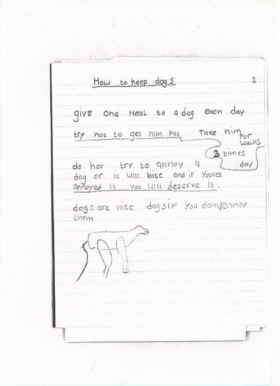 How to keep dogs
give one meal to a dog each day
try not to get him fat Take him for walks
3 times day
do not try to annoy a
dog or it will bite and if
annoyed it you will deserve it.
dogs are nice dogs if you
them